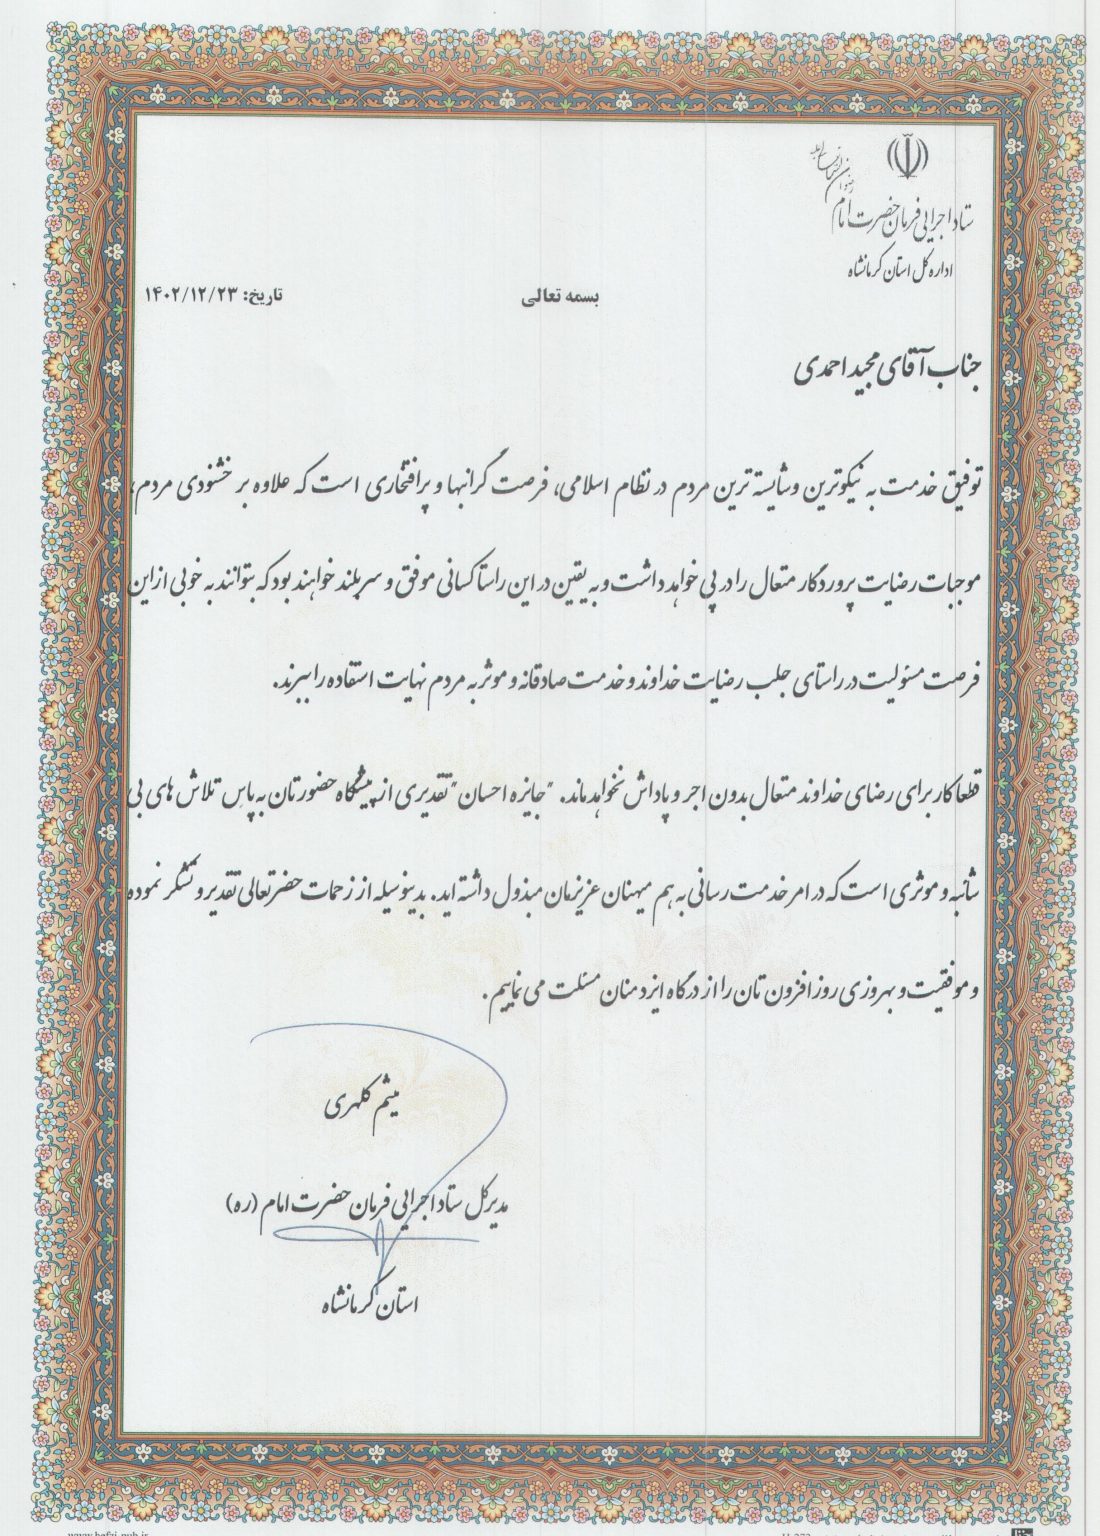 رضوان الله تعالی علیه
ستاد اجرایی فرمان حضرت امام
اداره کل استان کرمانشاه
بسمه تعالی
تاریخ: ۱۴۰۲/۱۲/۲۳
جناب آقای مجید احمدی
توفیق خدمت به نیکوترین و شایسته ترین مردم در نظام اسلامی، فرصت گرانبها و پرافتخاری است که علاوه بر خشنودی مردم،
موجبات رضایت پروردگار متعال را در پی خواهد داشت و به یقین در این راستا کسانی موفق و سربلند خواهند بود که بتوانند به خوبی از این
فرصت مسئولیت در راستای جلب رضایت خداوند و خدمت صادقانه و موثر به مردم نهایت استفاده را ببرند.
قطعا کار برای رضای خداوند متعال بدون اجر و پاداش نخواهد ماند. "جایزه احسان" تقدیری از پیشگاه حضورتان به پاس تلاش های بی
شائبه و موثری است که در امر خدمت رسانی به هم میهنان عزیزمان مبذول داشته اید. بدینوسیله از زحمات حضرتعالی تقدیر و تشکر نموده
و موفقیت و بهروزی روزافزون تان را از درگاه ایزد منان مسئلت می نماییم.
میثم کلهری
مدیرکل ستاد اجرایی فرمان حضرت امام (ره)
استان کرمانشاه